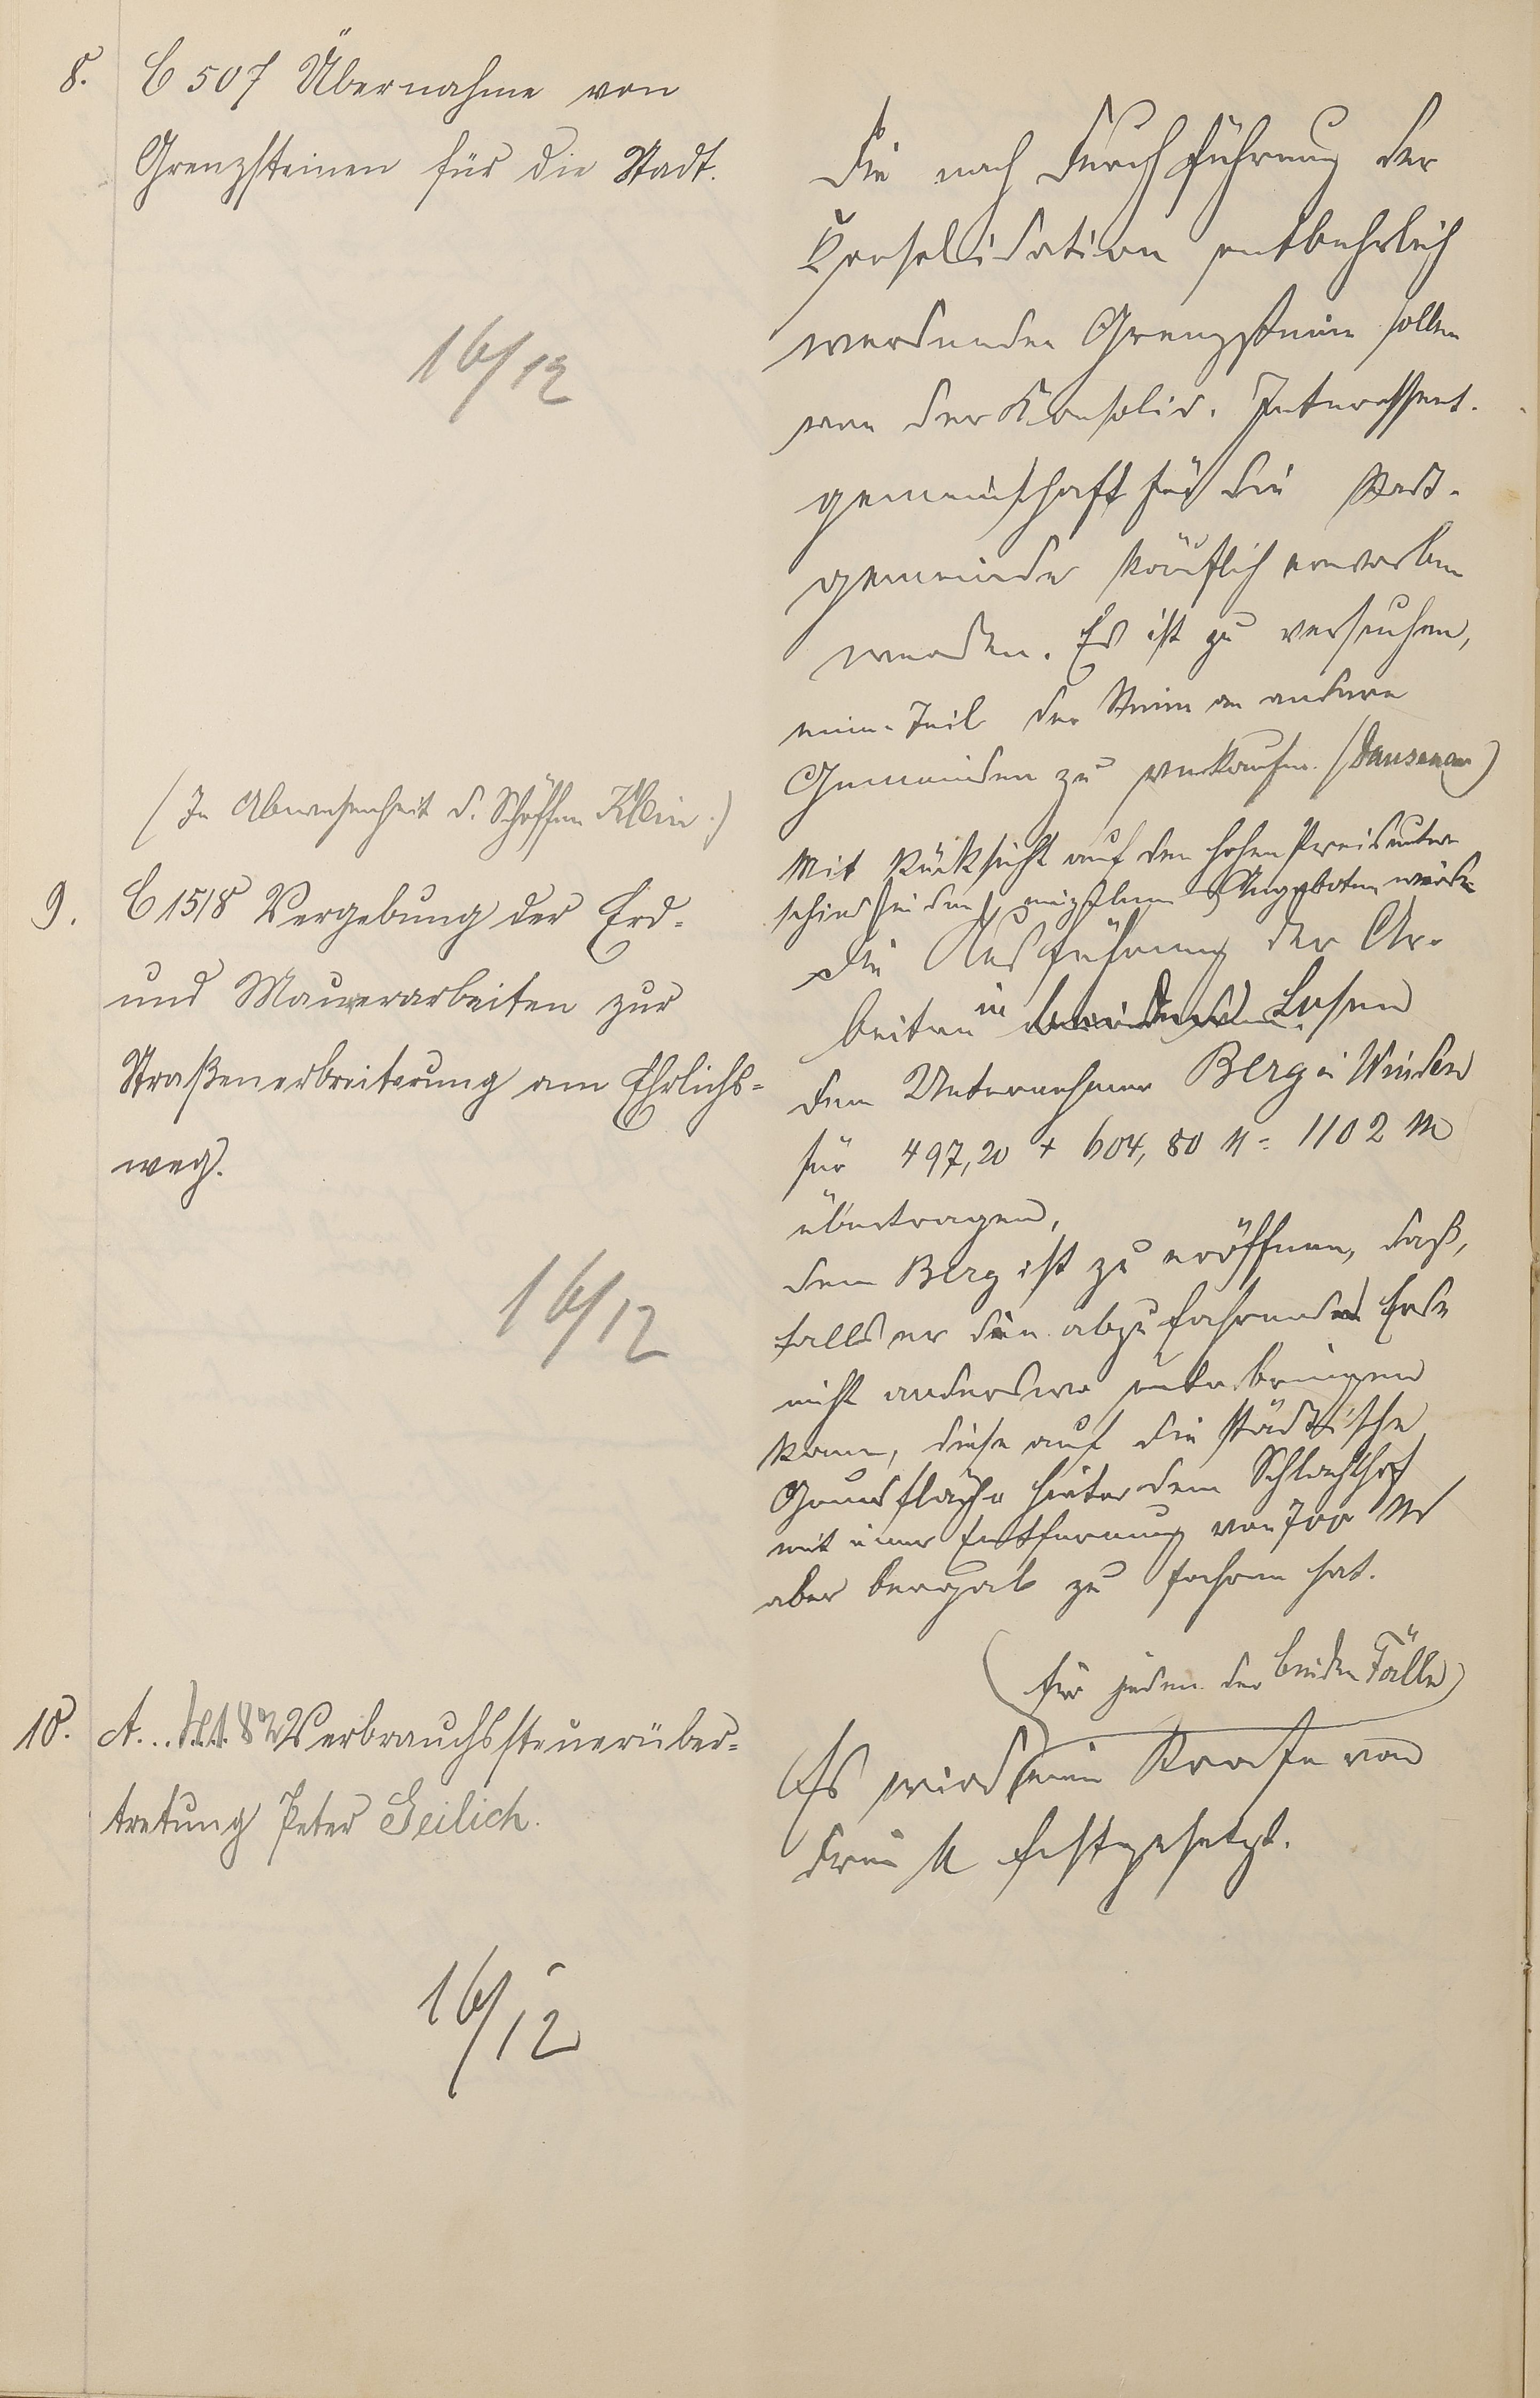 8.
C 507 Übernahme von
Grenzsteinen für die Stadt.
16/12
Die nach Durchführung der
Konsolidation entbehrlich
werdenden Grenzsteine sollen
von der Konsolid. Interessent.
gemeinschaft für die Stadt-
gemeinde käuflich erworben
werden. Es ist zu versuchen,
einen Teil der Steine an andere
Gemeinden zu verkaufen. (Dausenau)
(In Abwesenheit d. Schöffen Klein.)
9.
C 1518 Vergebung der Erd-
und Maurerarbeiten zur
Straßenerbreiterung am Ehrlichs-
weg.
16/12
Mit Rücksicht auf den hohen Preisunter-
schied bei den einzelnen Angeboten wird
die Ausführung der Ar-
beiten in beiden Losen
dem Unternehmer Berg in Winden
für 497,20 + 604,80 M = 1102 M
übertragen,
dem Berg ist zu eröffnen, daß,
falls er die abzufahrende Erde
nicht anderswo unterbringen
kann, diese auf die städtische
Grundfläche hinter dem Schlachthof
mit einer Entfernung von 700 M
aber bergab zu fahren hat.
10.
A... Verbrauchssteuerüber-
tretung Peter Geilich.
16/12
(für jeden der beiden Fälle)
Es wird eine Strafe von
drei M festgesetzt.